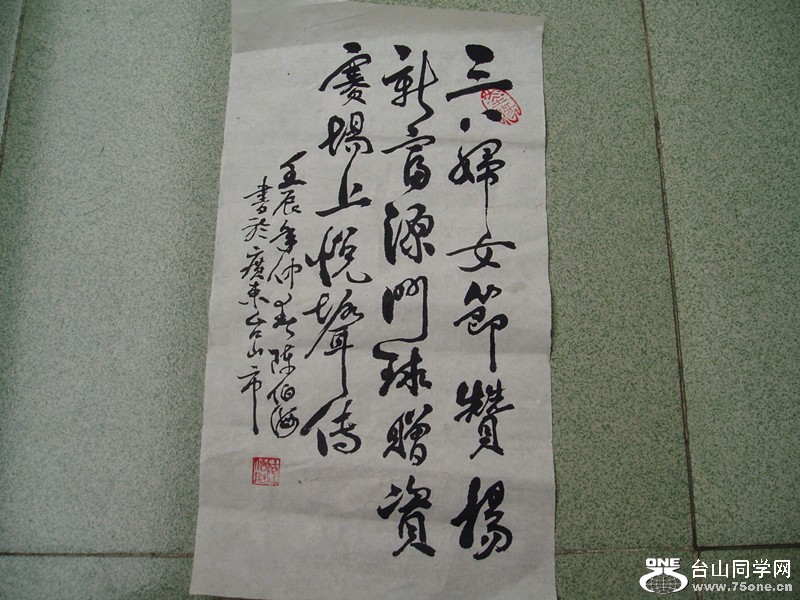 三八婦女節贊揚
新富源門球贈資
賽場上悅聲傳
壬辰年仲春陳伯海
書於廣東台山市
ONE
台山同学网
www.75one.cn